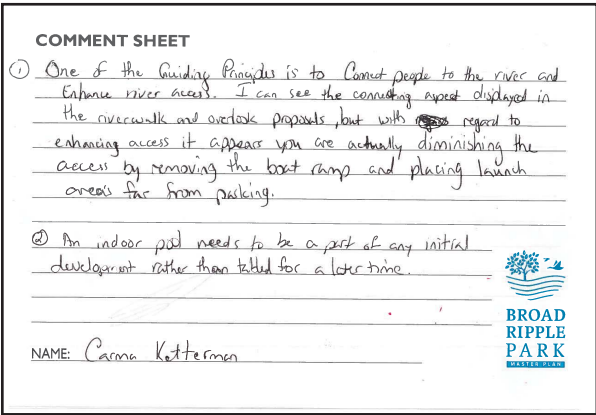 COMMENT SHEET
① One of the Guiding Principles is to Connect people to the river and
Enhance river access. I can see the connecting aspect displayed in
the riverwalk and overlook proposals, but with regard to
enhancing access it appears you are actually diminishing the
access by removing the boat ramp and placing launch
areas far from parking.
② An indoor pool needs to be a part of any initial
development rather than tabled for a later time.
BROAD
RIPPLE
PARK
MASTER PLAN
NAME: Carma Ketterman